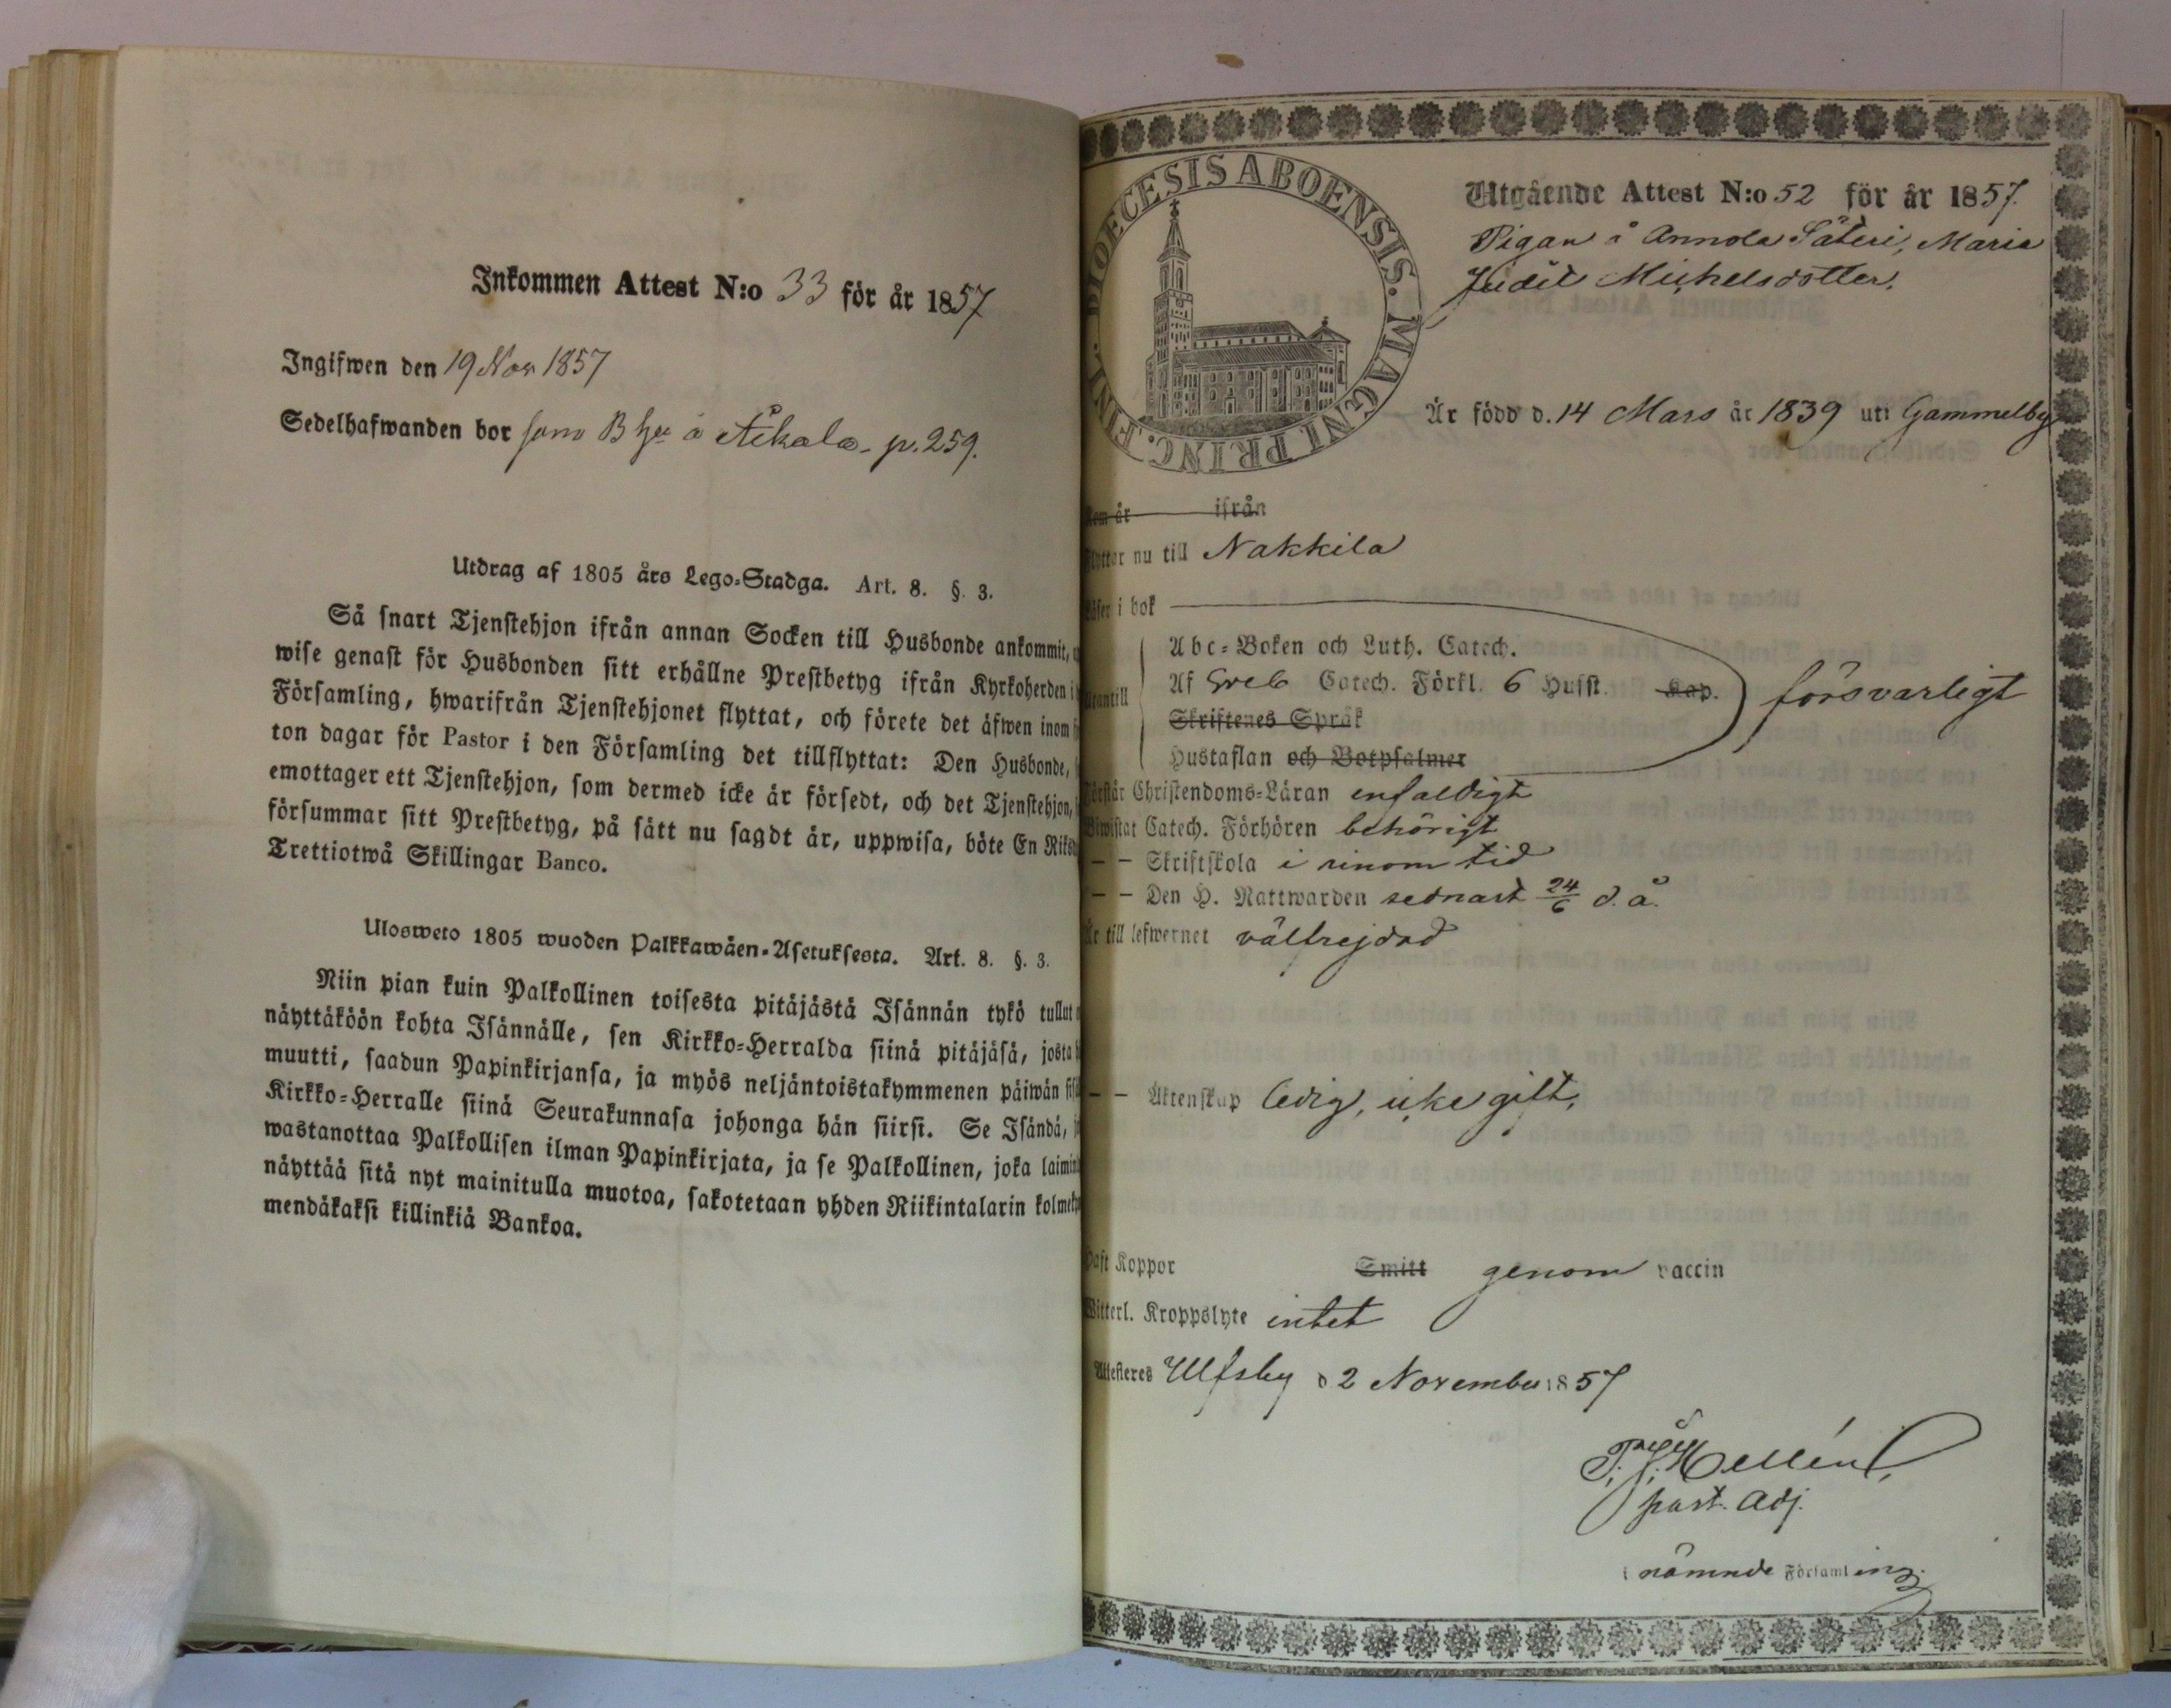 Inkommen Attest N:o 33 för år 1857
Ingifwen den 19 Nov 1857
Sedelhafwanden bor som å p. 259.
Utdrag af 1805 års Lego-Stadga. Art. 8. §. 3.
Så snart Tjenstehjon ifrån annan Socken till Husbonde ankommit,
wise genast för Husbonden sitt erhållne Prestbetyg ifrån Kyrkoherden i
Församling, hwarifrån Tjenstehjonet flyttat, och förete det äfwen inom
ton dagar för Pastor i den Församling det tillflyttat: Den Husbonde,
emottager ett Tjenstehjon, som dermed icke är försedt, och det Tjenstehjon,
försummar sitt Prestbetyg, på sätt nu sagdt är, uppwisa, böte En Riks
Trettiotwå Skillingar Banco.
Ulosweto 1805 wuoden Palkkawäen-Asetuksesta. Art. 8. §. 3.
Niin pian kuin Palkollinen toisesta pitäjästä Isännän tykö tullut
näyttäköön kohta Isännälle, sen Kirkko-Herralda siinä pitäjäsä, josta
muutti, saadun Papinkirjansa, ja myös neljäntoistakymmenen päiwän
Kirkko-Herralle siinä Seurakunnasa johonga hän siirsi. Se Isändä,
wastanottaa Palkollisen ilman Papinkirjata, ja se Palkollinen, joka laimin
näyttää sitä nyt mainitulla muotoa, sakotetaan yhden Riikintalarin kolmeky
mendäkaksi killinkiä Bankoa.
DIOECESIS ABOENSIS. MAGNI PRINC. FINL.
Utgående Attest N:o 52 för år 1857.
Pigan å Annola Säteri, Maria
Judit Michelsdotter.
Är född d. 14 Mars år 1839 uti Gammelby
Kom år ifrån
Flyttar nu till Nakkila
Läser i bok
Abc-Boken och Luth. Catech.
Utantill Af Sveb Catech. Förkl. 6 Husst. Kap. försvarligt
Skriftenes Språk
Hustaflan och Botpsalmer
Förstår Christendoms-Läran enfaldigt
Biwistat Catech. Förhören behörigt
— — Skriftskola i sinom tid
— — Den H. Nattwarden sednast 24/6 d. å.
Är till lefwernet välfrejdad
— — Äktenskap ledig, icke gift.
Haft Koppor Smitt genom vaccin
Witterl. Kroppslyte intet
Attesteras Ulfsby d 2 November 1857
Hellén
past. Adj.
i nämnde Församling.